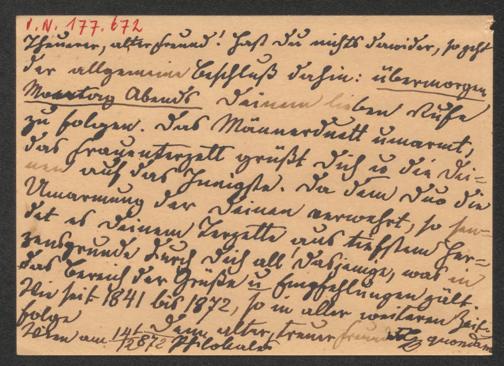 I.N. 177.672
Theurer, alter Freund! Hast du nichts dawider, so geht
der allgemeine Beschluß dahin: übermorgen
Montag Abends Deinem lieben Rufe
zu folgen. Das Männerduett umarmt,
das Frauenterzett grüßt Dich u die Dei-
nen auf das Innigste. Da dem Duo die
Umarmung der Deinen verwehrt, so sen-
det es Deinem Terzette aus tiefstem Her-
zensgrunde durch Dich all dasjenige, was in
das Bereich der Grüße u Empfehlungen zählt.
Wie seit 1841 bis 1872, so in aller weiteren Zeit-
folge Dein alter, treuer Freund quondam
Wien am 14t/2 872 Philokales